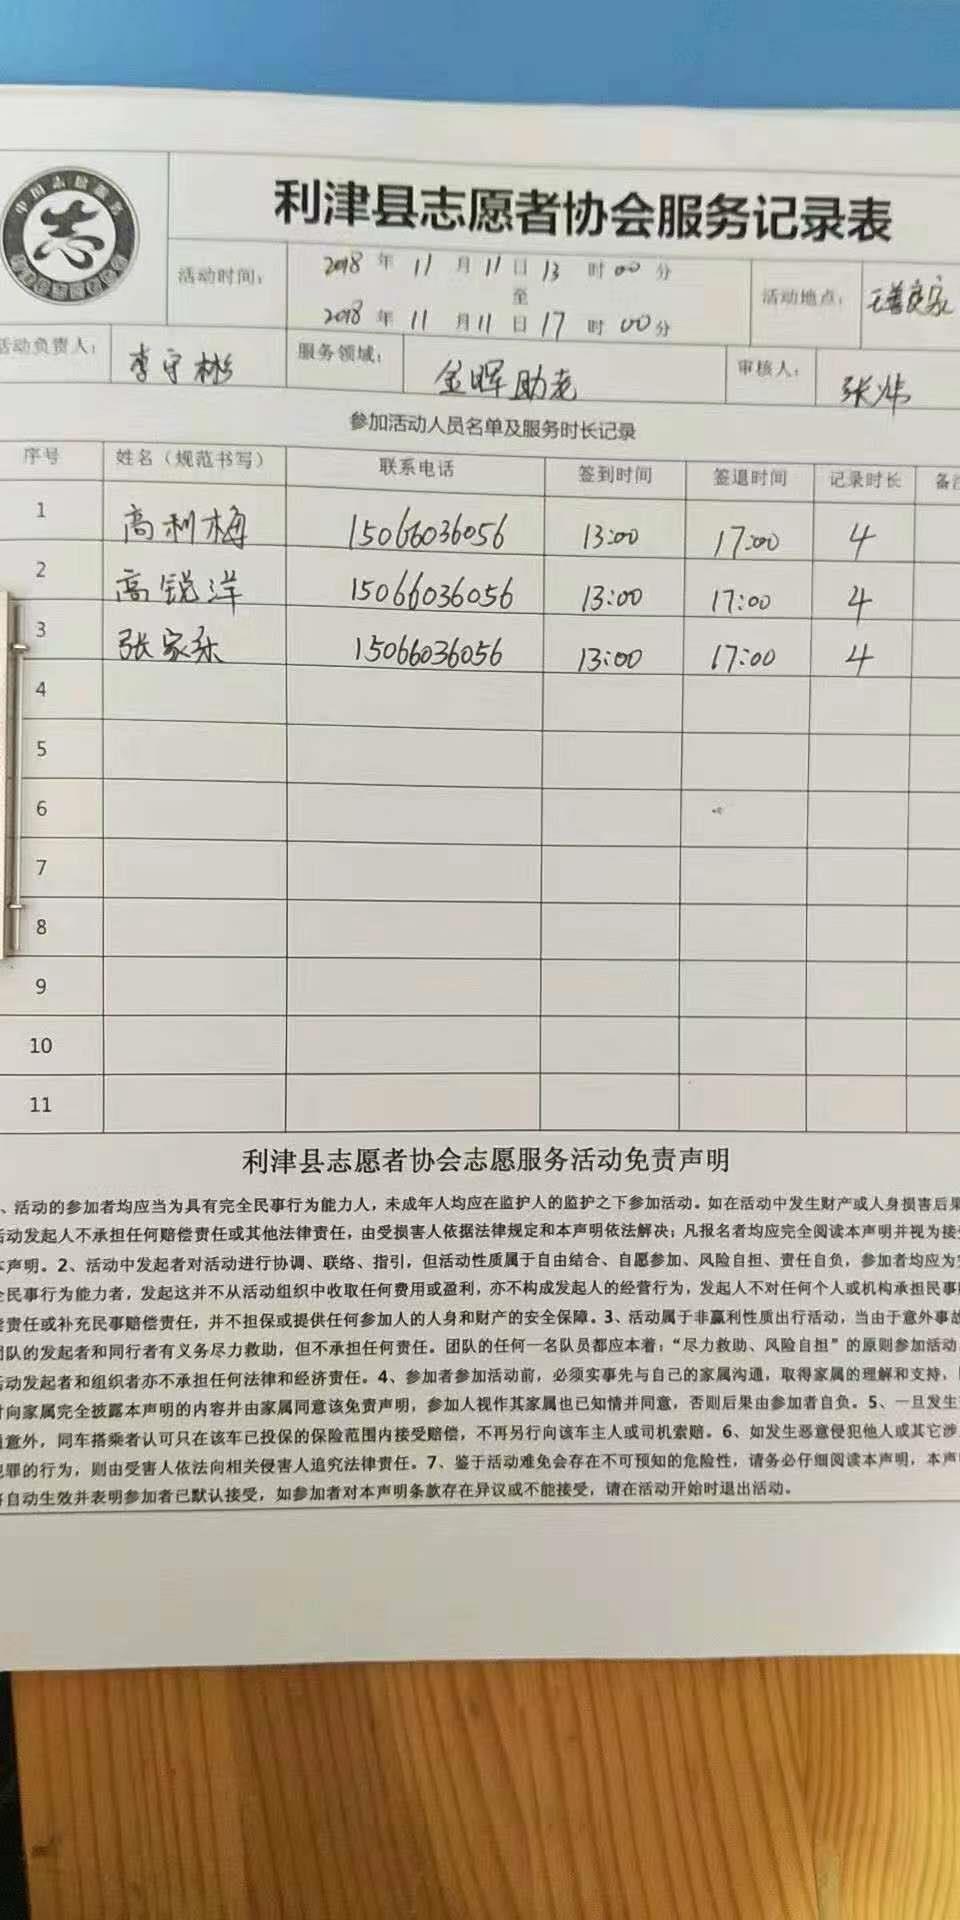 中国志愿服务
志
利津县志愿者协会服务记录表
活动时间：
2018 年 11 月 11 日 13 时 00 分
至
2018 年 11 月 11 日 17 时 00 分
活动地点：
活动负责人：
李守彬
服务领域：
金晖助老
审核人：
张炜
参加活动人员名单及服务时长记录
序号 姓名（规范书写） 联系电话 签到时间 签退时间 记录时长 备注
1 高利梅 15066036056 13:00 17:00 4
2 高锐洋 15066036056 13:00 17:00 4
3 张家 15066036056 13:00 17:00 4
4
5
6
7
8
9
10
11
利津县志愿者协会志愿服务活动免责声明
、活动的参加者均应当为具有完全民事行为能力人，未成年人均应在监护人的监护之下参加活动。如在活动中发生财产或人身损害后果
活动发起人不承担任何赔偿责任或其他法律责任，由受损害人依据法律规定和本声明依法解决；凡报名者均应完全阅读本声明并视为接受
本声明。2、活动中发起者对活动进行协调、联络、指引，但活动性质属于自由结合、自愿参加、风险自担、责任自负，参加者均应为完
全民事行为能力者，发起这并不从活动组织中收取任何费用或盈利，亦不构成发起人的经营行为，发起人不对任何个人或机构承担民事赔
偿责任或补充民事赔偿责任，并不担保或提供任何参加人的人身和财产的安全保障。3、活动属于非赢利性质出行活动，当由于意外事故
团队的发起者和同行者有义务尽力救助，但不承担任何责任。团队的任何一名队员都应本着：“尽力救助、风险自担”的原则参加活动
活动发起者和组织者亦不承担任何法律和经济责任。4、参加者参加活动前，必须实事先与自己的家属沟通，取得家属的理解和支持，
时向家属完全披露本声明的内容并由家属同意该免责声明，参加人视作其家属也已知情并同意，否则后果由参加者自负。5、一旦发生
通意外，同车搭乘者认可只在该车已投保的保险范围内接受赔偿，不再另行向该车主人或司机索赔。6、如发生恶意侵犯他人或其它涉
犯罪的行为，则由受害人依法向相关侵害人追究法律责任。7、鉴于活动难免会存在不可预知的危险性，请务必仔细阅读本声明，本声明
将自动生效并表明参加者已默认接受，如参加者对本声明条款存在异议或不能接受，请在活动开始时退出活动。